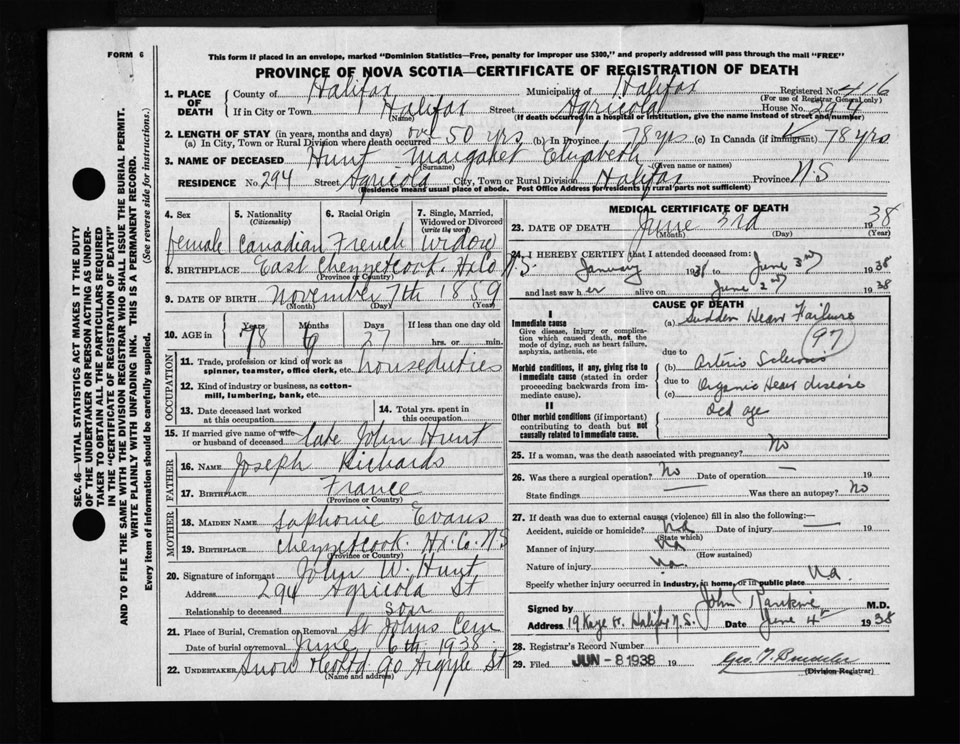 FORM 6
This form if placed in an envelope, marked "Dominion Statistics—Free, penalty for improper use $300," and properly addressed will pass through the mail "FREE"
PROVINCE OF NOVA SCOTIA—CERTIFICATE OF REGISTRATION OF DEATH
SEC. 46—VITAL STATISTICS ACT MAKES IT THE DUTY
OF THE UNDERTAKER OR PERSON ACTING AS UNDER-
TAKER TO OBTAIN ALL THE PARTICULARS REQUIRED
IN THE "CERTIFICATE OF REGISTRATION OF DEATH"
AND TO FILE THE SAME WITH THE DIVISION REGISTRAR WHO SHALL ISSUE THE BURIAL PERMIT.
WRITE PLAINLY WITH UNFADING INK. THIS IS A PERMANENT RECORD.
Every item of information should be carefully supplied. (See reverse side for instructions.)
1. PLACE OF DEATH County of Halifax Municipality of Halifax Registered No. 416
(For use of Registrar General only)
If in City or Town Halifax Street Agricola House No. 294
(Name) (If death occurred in a hospital or institution, give the name instead of street and number)
2. LENGTH OF STAY (in years, months and days)
(a) In City, Town or Rural Division where death occurred over 50 yrs (b) In Province 78 yrs (c) In Canada (if immigrant) 78 yrs
3. NAME OF DECEASED Hunt Margaret Elizabeth
(Surname) (Given name or names)
RESIDENCE No. 294 Street Agricola City, Town or Rural Division Halifax Province N.S
(Residence means usual place of abode. Post Office Address for residents in rural parts not sufficient)
4. Sex 5. Nationality (Citizenship) 6. Racial Origin 7. Single, Married, Widowed or Divorced (write the word)
female Canadian French widow
8. BIRTHPLACE East Chezzetcook. Hx Co N.S.
(Province or Country)
9. DATE OF BIRTH November 7th 1859
(Month) (Day) (Year)
10. AGE in Years Months Days If less than one day old
78 6 27 hrs. or min.
OCCUPATION
11. Trade, profession or kind of work as spinner, teamster, office clerk, etc. houseduties
12. Kind of industry or business, as cotton-mill, lumbering, bank, etc.
13. Date deceased last worked at this occupation
14. Total yrs. spent in this occupation
15. If married give name of wife or husband of deceased late John Hunt
FATHER
16. NAME Joseph Richards
17. BIRTHPLACE France
(Province or Country)
MOTHER
18. MAIDEN NAME Saphonie Evans
19. BIRTHPLACE Chezzetcook. Hx. Co. N.S
(Province or Country)
20. Signature of informant John W. Hunt
Address 294 Agricola St
Relationship to deceased son
21. Place of Burial, Cremation or Removal St Johns Cem
Date of burial or removal June 6th 1938
22. UNDERTAKER Snow 90 Argyle St
(Name and address)
MEDICAL CERTIFICATE OF DEATH
23. DATE OF DEATH June 3rd 1938
(Month) (Day) (Year)
24. I HEREBY CERTIFY that I attended deceased from:
January 1938 to June 3rd 1938
and last saw her alive on June 2nd 1938
CAUSE OF DEATH
I
Immediate cause (a) Sudden Heart Failure
Give disease, injury or complication which caused death, not the mode of dying, such as heart failure, asphyxia, asthenia, etc
97
due to
Morbid conditions, if any, giving rise to immediate cause (stated in order proceeding backwards from immediate cause).
(b) Arterio Sclerosis
due to
(c) Organic Heart disease
II
Other morbid conditions (if important) contributing to death but not causally related to immediate cause.
Old age
25. If a woman, was the death associated with pregnancy? No
26. Was there a surgical operation? No Date of operation — 19
State findings — Was there an autopsy? No
27. If death was due to external causes (violence) fill in also the following:—
Accident, suicide or homicide? Date of injury — 19
(State which)
Manner of injury na
(How sustained)
Nature of injury na.
Specify whether injury occurred in industry, in home, or in public place na.
Signed by John Rankine M.D.
Address 19 Kaye St. Halifax N.S. Date June 4th 1938
28. Registrar's Record Number
29. Filed JUN - 8 1938 19
(Division Registrar)